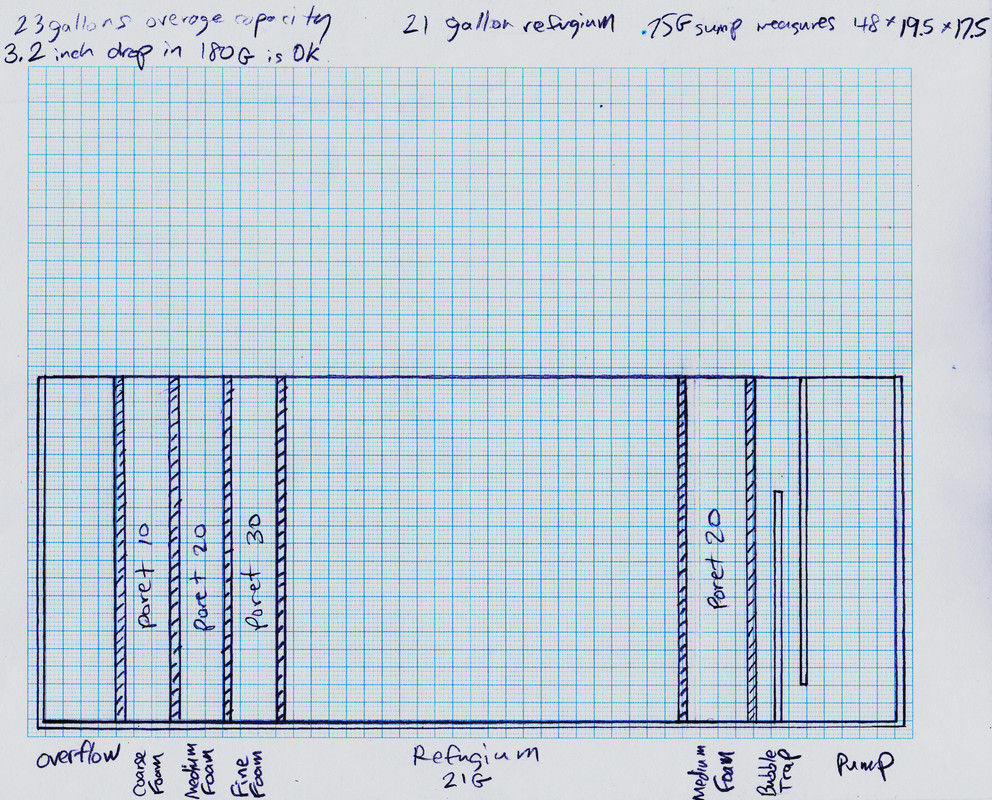 23 gallons overage capacity
21 gallon refugium
75G sump measures 48 x 19.5 x 17.5
3.2 inch drop in 180G is OK
Poret 10
Poret 20
Poret 30
Poret 20
overflow
Coarse Foam
Medium Foam
Fine Foam
Refugium
21G
Medium Foam
Bubble Trap
Pump